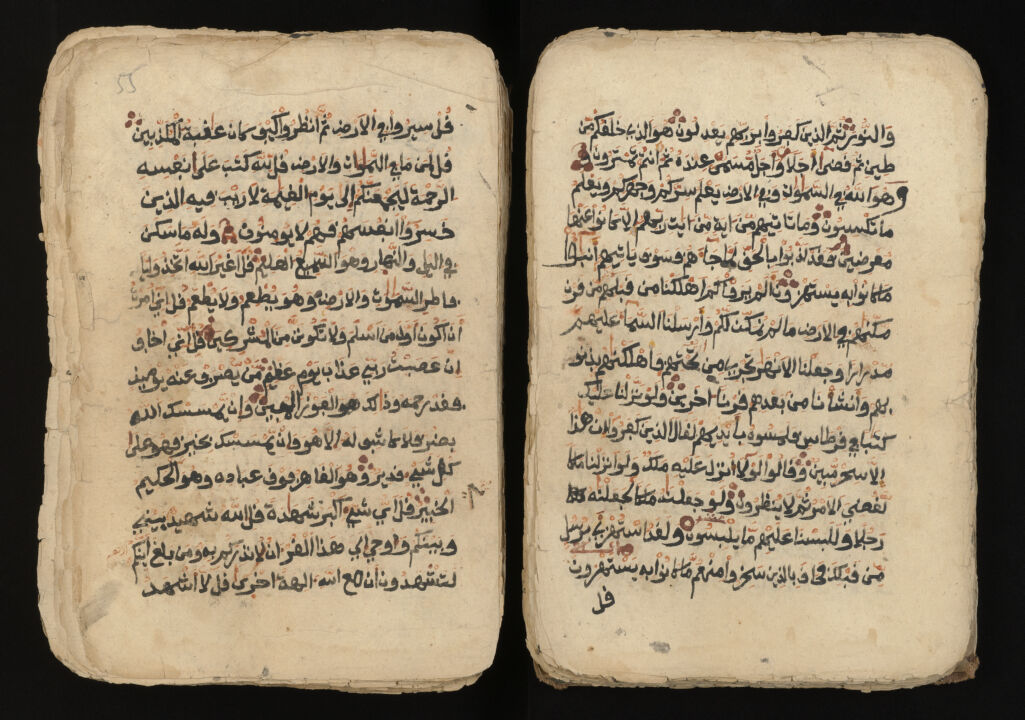 والنور ثم الذين كفروا بربهم يعدلون هو الذي خلقكم من
طين ثم قضى أجلا وأجل مسمى عنده ثم أنتم تمترون
وهو الله في السموات وفي الارض يعلم سركم وجهركم ويعلم
ما تكسبون وما تاتيهم من اية من ايت ربهم الا كانوا عنها
معرضين فقد كذبوا بالحق لما جاءهم فسوف ياتيهم انبؤا
ما كانوا به يستهزءون الم يروا كم اهلكنا من قبلهم من قرن
مكنهم في الارض ما لم نمكن لكم وأرسلنا السماء عليهم
مدرارا وجعلنا الانهر تجري من تحتهم فاهلكنهم بذنو
بهم وأنشأنا من بعدهم قرنا اخرين ولو نزلنا عليك
كتبا في قرطاس فلمسوه بأيديهم لقال الذين كفروا ان هذا
الا سحر مبين وقالوا لولا انزل عليه ملك ولو انزلنا ملكا
لقضي الامر ثم لا ينظرون ولو جعلنه ملكا لجعلنه
رجلا وللبسنا عليهم ما يلبسون ولقد استهزئ برسل
من قبلك فحاق بالذين سخروا منهم ما كانوا به يستهزءون
قل
55
قل سيروا في الارض ثم انظروا كيف كان عقبة المكذبين
قل لمن ما في السموات والارض قل لله كتب على نفسه
الرحمة ليجمعنكم الى يوم القيمة لا ريب فيه الذين
خسروا أنفسهم فهم لا يومنون وله ما سكن
في اليل والنهار وهو السميع العليم قل أغير الله أتخذ وليا
فاطر السموت والارض وهو يطعم ولا يطعم قل اني امرت
أن أكون أول من أسلم ولا تكونن من المشركين قل اني اخاف
ان عصيت ربي عذاب يوم عظيم من يصرف عنه يوميذ
فقد رحمه وذالك هو الفوز المبين وإن يمسسك الله
بضر فلا كاشف له الا هو وان يمسسك بخير فهو على
كل شيء قدير وهو القاهر فوق عباده وهو الحكيم
الخبير قل أي شيء أكبر شهدة قل الله شهيد بيني
وبينكم وأوحي إلي هذا القران لانذركم به ومن بلغ أينكم
لتشهدون أن مع الله الهة اخرى قل لا اشهد